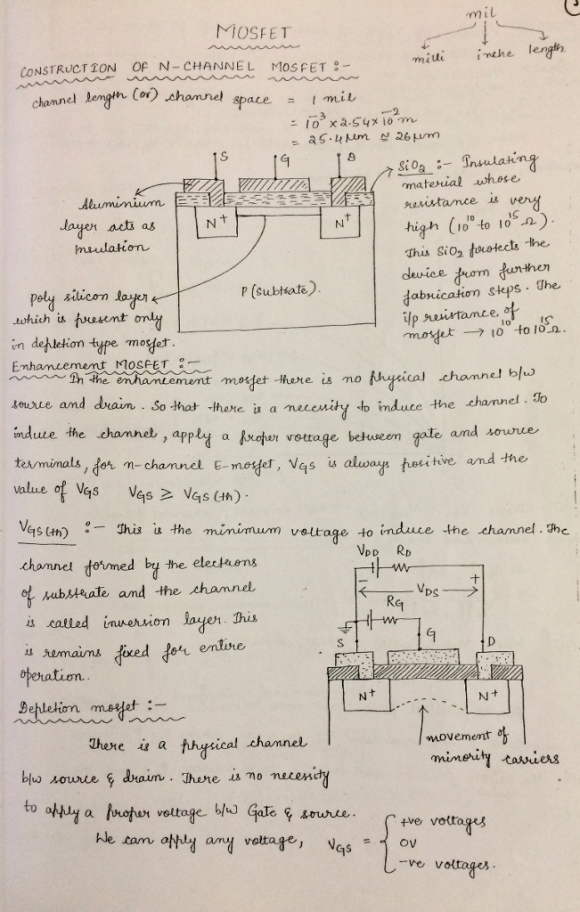 mil
milli inche length
MOSFET
CONSTRUCTION OF N-CHANNEL MOSFET :-
channel length (or) channel space = 1 mil
= 10⁻³ × 2.54 × 10⁻² m
= 25.4 μm ≅ 26 μm
S G D
Aluminium
layer acts as
Insulation
N+ N+
P (Subtrate).
Poly silicon layer
which is present only
in depletion type mosfet.
SiO2 :- Insulating
material whose
resistance is very
high (10¹⁰ to 10¹⁵ Ω).
This SiO2 protects the
device from further
fabrication steps. The
i/p resistance of
mosfet → 10¹⁰ to 10¹⁵ Ω.
Enhancement MOSFET :-
In the enhancement mosfet there is no physical channel b/w
source and drain. So that there is a necessity to induce the channel. To
induce the channel, apply a proper voltage between gate and source
terminals, for n-channel E-mosfet, VGS is always positive and the
value of VGS VGS ≥ VGS(th).
VGS(th) :- This is the minimum voltage to induce the channel. The
channel formed by the electrons
of substrate and the channel
is called inversion layer. This
is remains fixed for entire
operation.
VDD RD
- VDS +
RG
S G D
N+ N+
movement of
minority carriers
Depletion mosfet :-
There is a physical channel
b/w source & drain. There is no necessity
to apply a proper voltage b/w Gate & source.
We can apply any voltage, VGS = { +ve voltages
0V
-ve voltages.